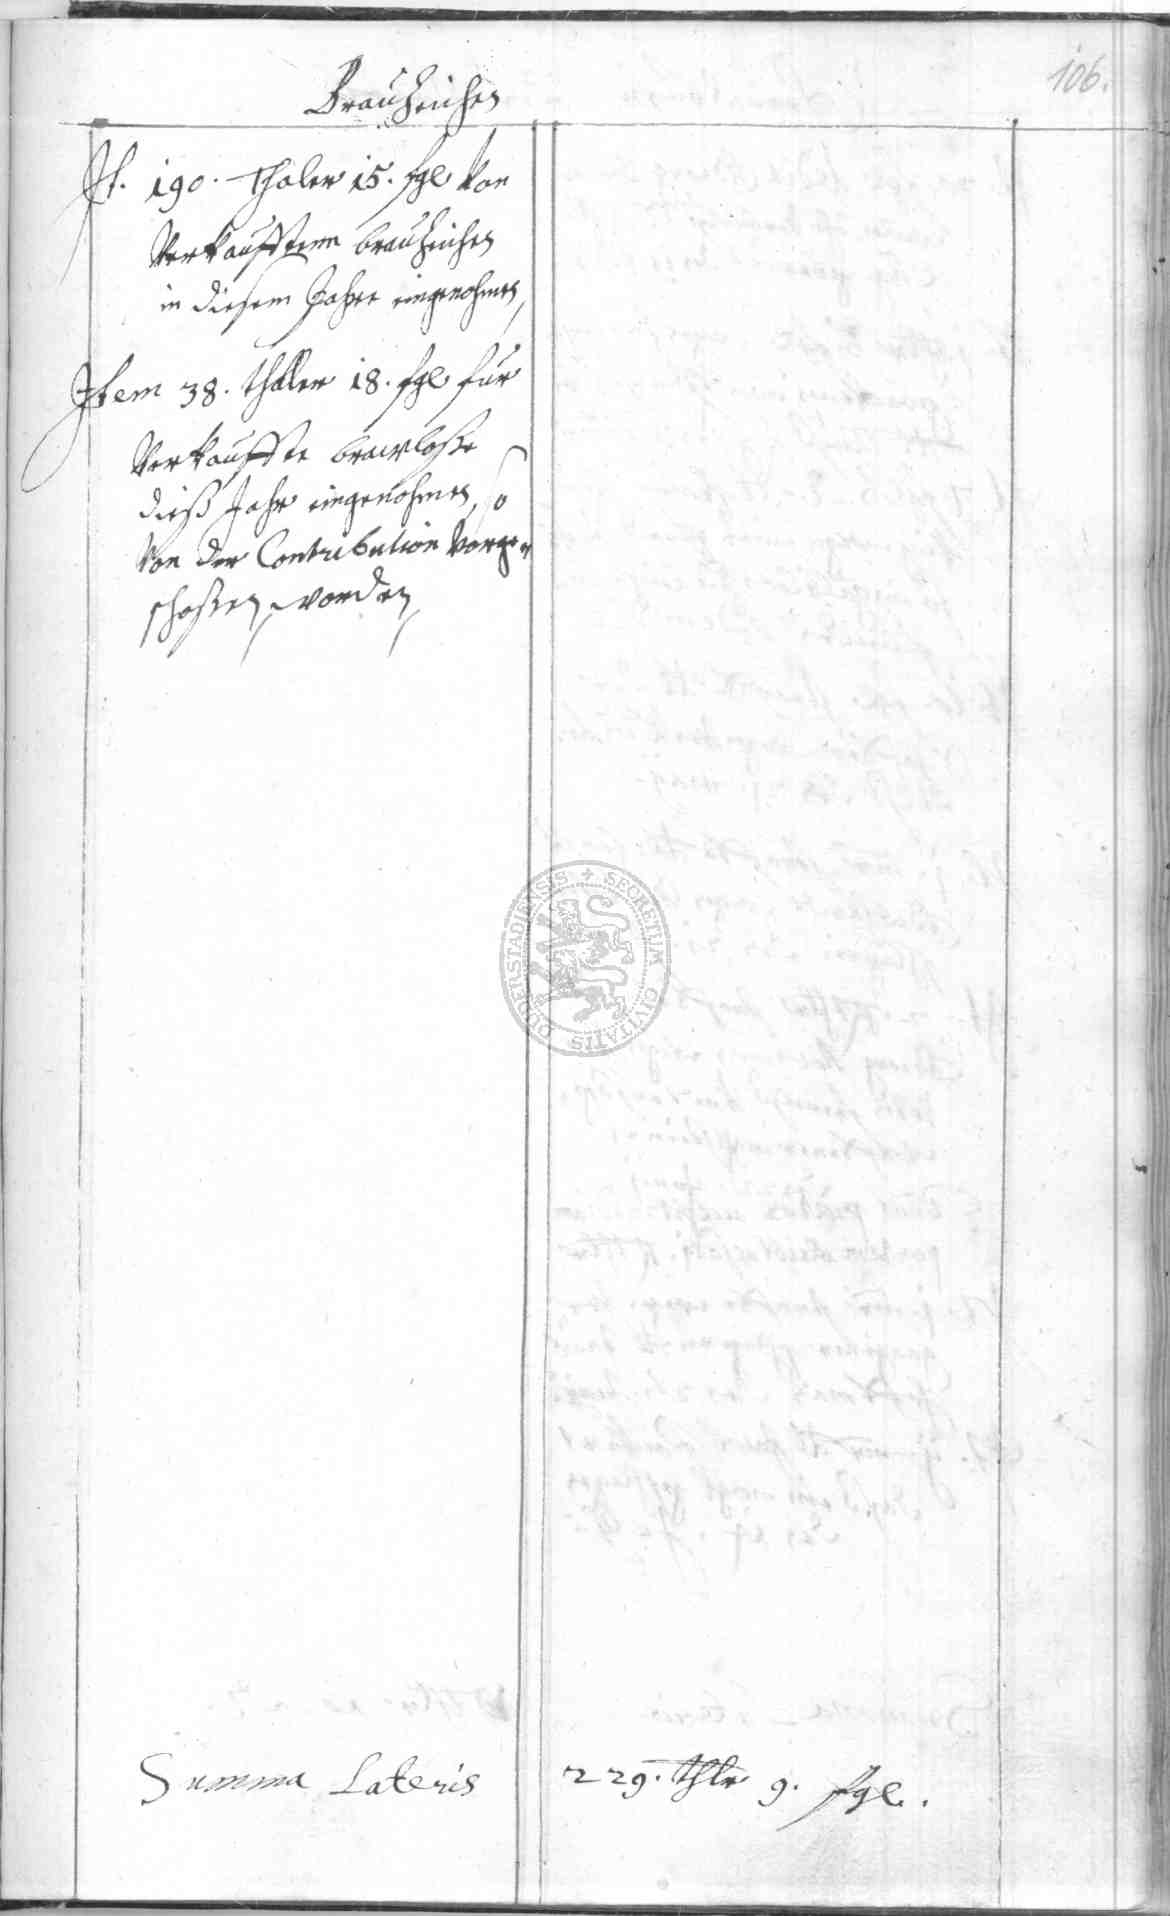 106.
Brauzeichen
It. 190. Thaler 15. sgl von
Verkaufftenn brauzeichen
in diesem Jahre eingenohmen
Item 38. thaller 18. sgl für
Verkauffte brawloße
dieß Jahr eingenohmen, so
von der Contribution vorge-
schoßen worden
SECRETUM CIVITATIS DUDERSTADIENSIS
Summa Lateris 229. thlr 9. sgl.